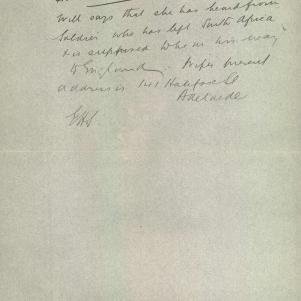 Wife says that she has heard from
Soldier who has left South Africa
& is supposed to be on his way
to England. Wifes present
address is 141 Halifax St
Adelaide